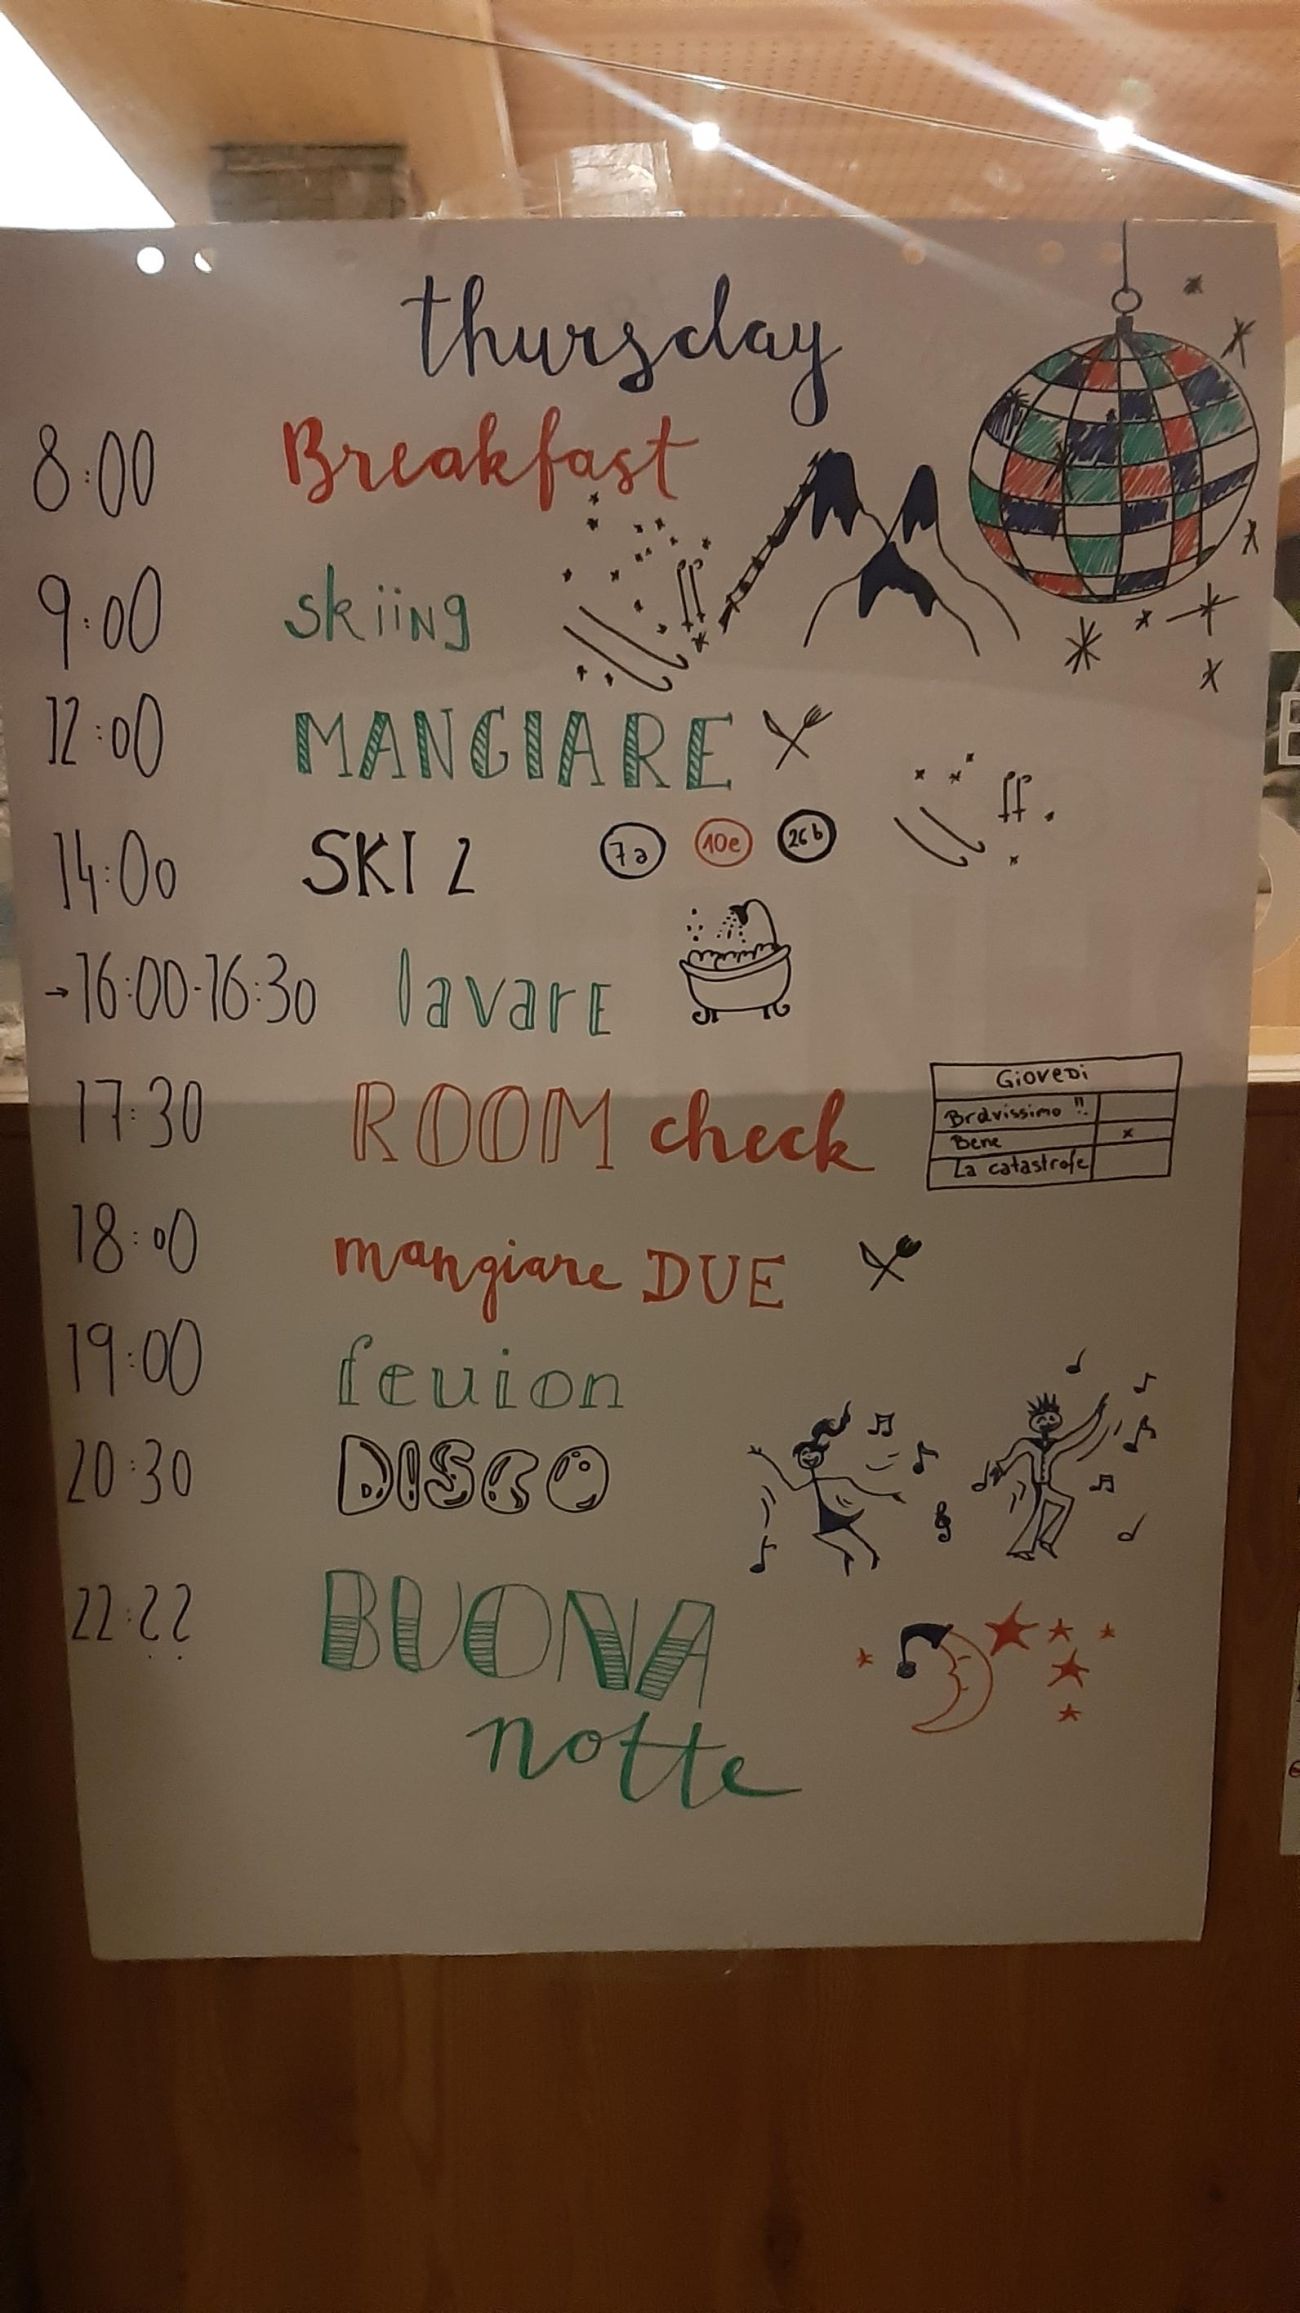 thursday
8:00 Breakfast
9:00 skiing
12:00 MANGIARE
14:00 SKI 2 7a 10e 26b
→16:00-16:30 lavare
17:30 ROOM check
Giovedi
Bravissimo !!
Bene x
La catastrofe
18:00 mangiare DUE
19:00 feuion
20:30 DISCO
22:22 BUONA
notte